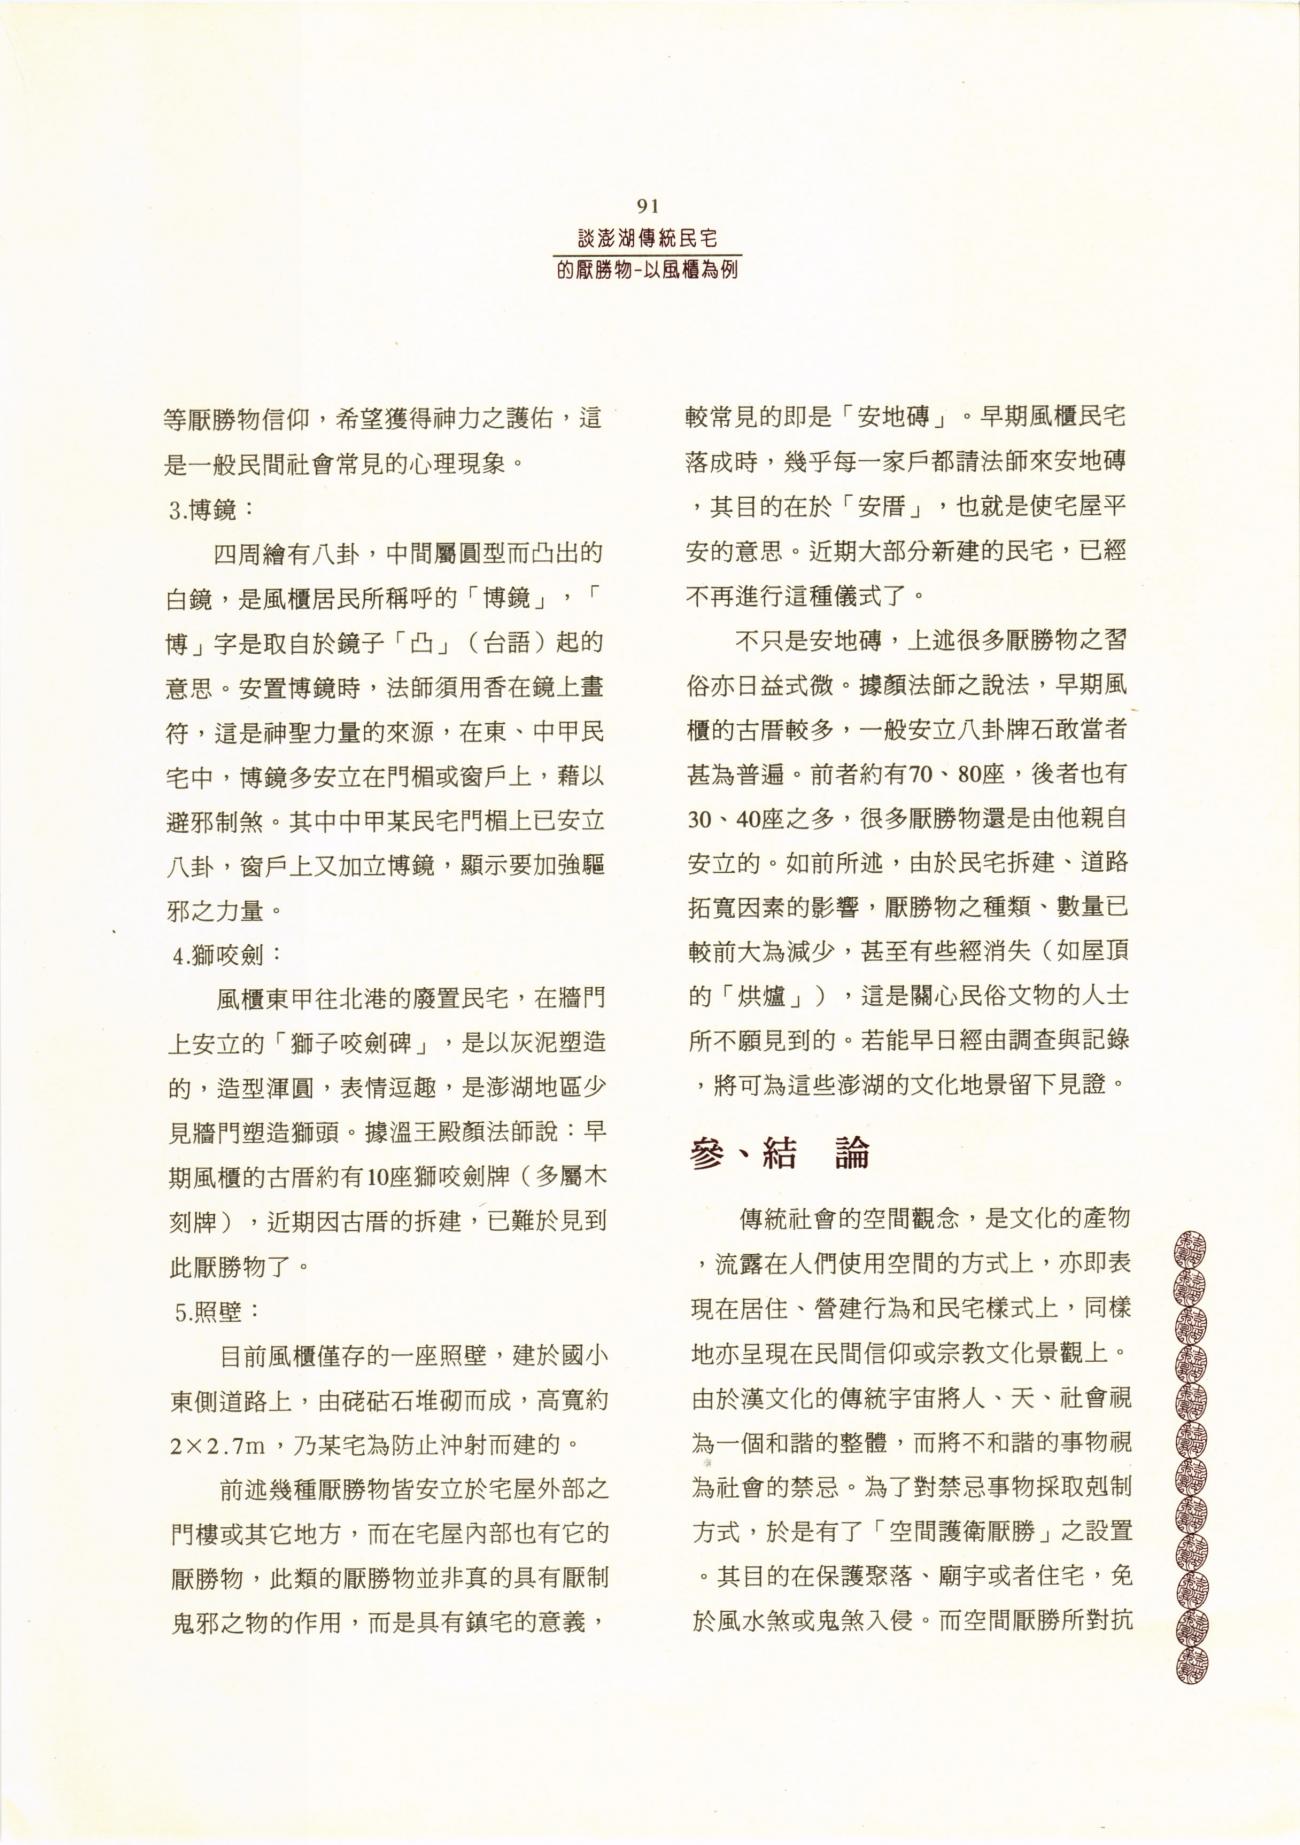 91
談澎湖傳統民宅
的厭勝物-以風櫃為例
等厭勝物信仰，希望獲得神力之護佑，這
是一般民間社會常見的心理現象。
3.博鏡：
四周繪有八卦，中間屬圓型而凸出的
白鏡，是風櫃居民所稱呼的「博鏡」，「
博」字是取自於鏡子「凸」（台語）起的
意思。安置博鏡時，法師須用香在鏡上畫
符，這是神聖力量的來源，在東、中甲民
宅中，博鏡多安立在門楣或窗戶上，藉以
避邪制煞。其中中甲某民宅門楣上已安立
八卦，窗戶上又加立博鏡，顯示要加強驅
邪之力量。
4.獅咬劍：
風櫃東甲往北港的廢置民宅，在牆門
上安立的「獅子咬劍碑」，是以灰泥塑造
的，造型渾圓，表情逗趣，是澎湖地區少
見牆門塑造獅頭。據溫王殿顏法師說：早
期風櫃的古厝約有10座獅咬劍牌（多屬木
刻牌），近期因古厝的拆建，已難於見到
此厭勝物了。
5.照壁：
目前風櫃僅存的一座照壁，建於國小
東側道路上，由硓𥑮石堆砌而成，高寬約
2×2.7m，乃某宅為防止沖射而建的。
前述幾種厭勝物皆安立於宅屋外部之
門樓或其它地方，而在宅屋內部也有它的
厭勝物，此類的厭勝物並非真的具有厭制
鬼邪之物的作用，而是具有鎮宅的意義，
較常見的即是「安地磚」。早期風櫃民宅
落成時，幾乎每一家戶都請法師來安地磚
，其目的在於「安厝」，也就是使宅屋平
安的意思。近期大部分新建的民宅，已經
不再進行這種儀式了。
不只是安地磚，上述很多厭勝物之習
俗亦日益式微。據顏法師之說法，早期風
櫃的古厝較多，一般安立八卦牌石敢當者
甚為普遍。前者約有70、80座，後者也有
30、40座之多，很多厭勝物還是由他親自
安立的。如前所述，由於民宅拆建、道路
拓寬因素的影響，厭勝物之種類、數量已
較前大為減少，甚至有些經消失（如屋頂
的「烘爐」），這是關心民俗文物的人士
所不願見到的。若能早日經由調查與記錄
，將可為這些澎湖的文化地景留下見證。
參、結　論
傳統社會的空間觀念，是文化的產物
，流露在人們使用空間的方式上，亦即表
現在居住、營建行為和民宅樣式上，同樣
地亦呈現在民間信仰或宗教文化景觀上。
由於漢文化的傳統宇宙將人、天、社會視
為一個和諧的整體，而將不和諧的事物視
為社會的禁忌。為了對禁忌事物採取剋制
方式，於是有了「空間護衛厭勝」之設置
。其目的在保護聚落、廟宇或者住宅，免
於風水煞或鬼煞入侵。而空間厭勝所對抗